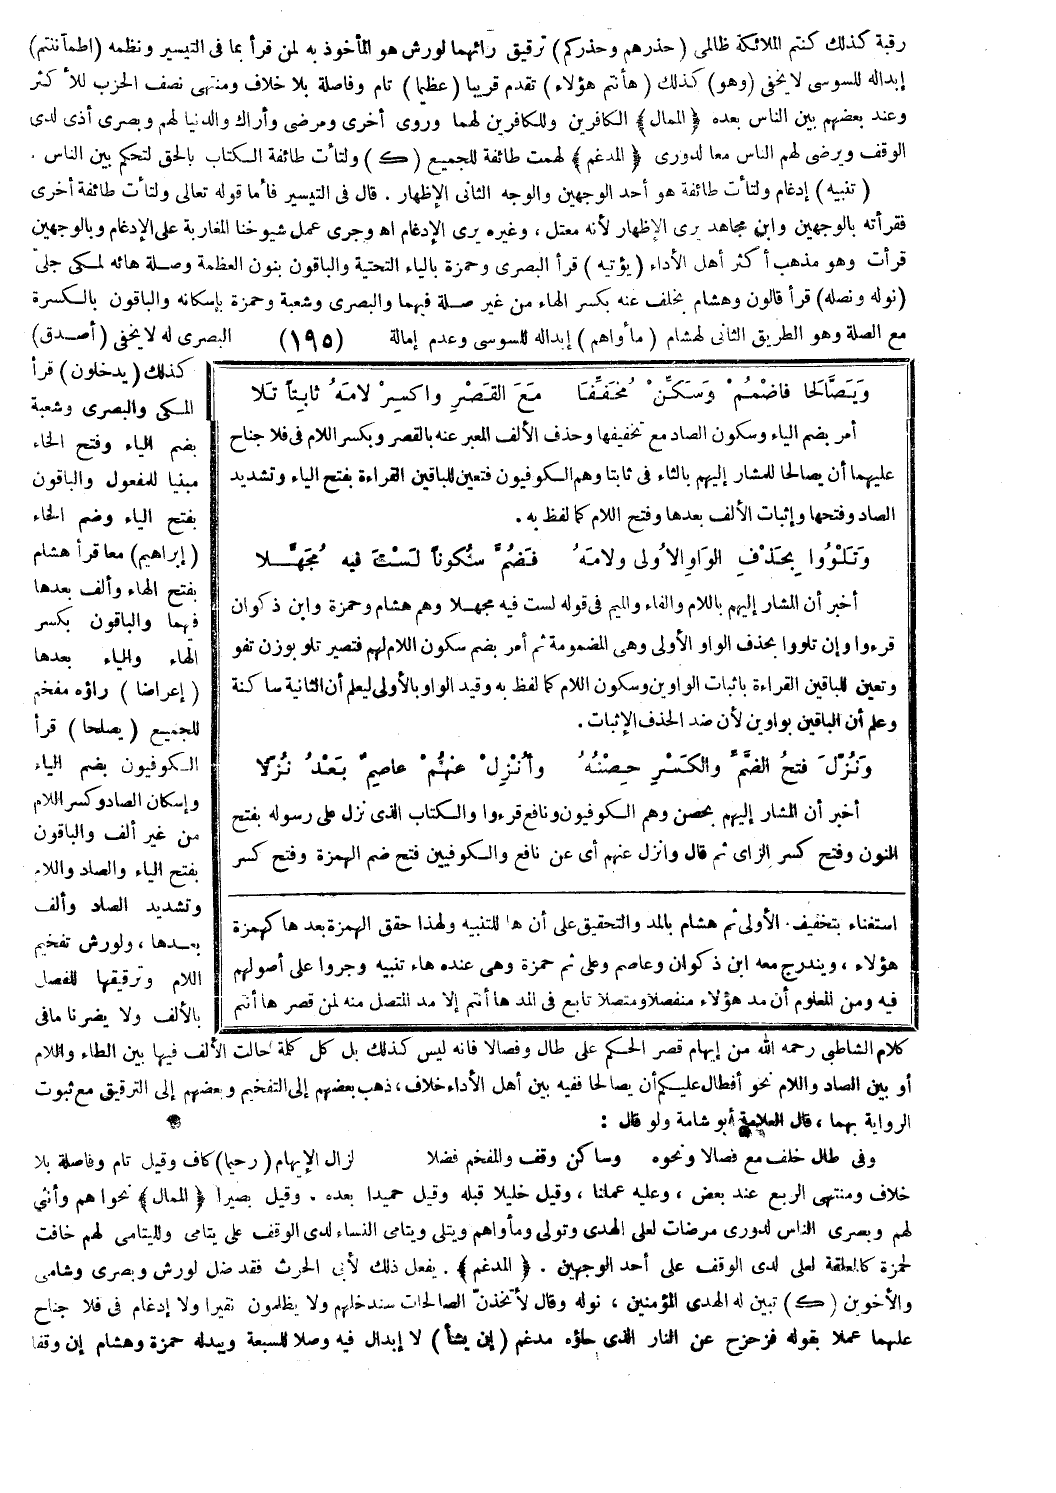 رقبة كذلك كنتم الملائكة ظالمى (حذرهم وحذركم) ترقيق رائهما لورش هو المأخوذ به لمن قرأ بما فى التيسير ونظمه (اطمأننتم)
إبداله للسوسى لا يخفى (وهو) كذلك (هأنتم هؤلاء) تقدم قريبا (عظيما) تام وفاصلة بلا خلاف ومنتهى نصف الحزب للأكثر
وعند بعضهم بين الناس بعده ﴿الممال﴾ الكافرين وللكافرين لهما وروى أخرى ومرضى وأراك والدنيا لهم وبصرى أذى لدى
الوقف ويرضى لهم الناس معا لدورى ﴿المدغم﴾ لهمت طائفة للجميع (ك) ولتأت طائفة الكتاب بالحق لتحكم بين الناس .
(تنبيه) إدغام ولتأت طائفة هو أحد الوجهين والوجه الثانى الإظهار . قال فى التيسير فأما قوله تعالى ولتأت طائفة أخرى
فقرأته بالوجهين وابن مجاهد يرى الإظهار لأنه معتل ، وغيره يرى الإدغام اه وجرى عمل شيوخنا المغاربة على الإدغام وبالوجهين
قرأت وهو مذهب أكثر أهل الأداء (يؤتيه) قرأ البصرى وحمزة بالياء التحتية والباقون بنون العظمة وصلة هائه لمكى جلىّ
(نوله ونصله) قرأ قالون وهشام بخلف عنه بكسر الهاء من غير صلة فيهما والبصرى وشعبة وحمزة بإسكانه والباقون بالكسرة
مع الصلة وهو الطريق الثانى لهشام (مأواهم) إبداله للسوسى وعدم إمالة (١٩٥) البصرى له لا يخفى (أصدق)
كذلك (يدخلون) قرأ
المكى والبصرى وشعبة
بضم الياء وفتح الخاء
مبنيا للمفعول والباقون
بفتح الياء وضم الخاء
(إبراهيم) معا قرأ هشام
بفتح الهاء وألف بعدها
فيهما والباقون بكسر
الهاء والياء بعدها
(إعراضا) راؤه مفخم
للجميع (يصلحا) قرأ
الكوفيون بضم الياء
وإسكان الصاد وكسر اللام
من غير ألف والباقون
بفتح الياء والصاد واللام
وتشديد الصاد وألف
بعدها ، ولورش تفخيم
اللام وترقيقها للفصل
بالألف ولا يضرنا مافى
وَيَصَّالَحَا فَاضْمُمْ وَسَكِّنْ مُخَفِّفًا مَعَ القَصْرِ واكسِرْ لامَهُ ثابِتاً تَلا
أمر بضم الياء وسكون الصاد مع تخفيفها وحذف الألف المعبر عنه بالقصر وبكسر اللام فى فلا جناح
عليهما أن يصالحا للمشار إليهم بالثاء فى ثابتا وهم الكوفيون فتعين للباقين القراءة بفتح الياء وتشديد
الصاد وفتحها وإثبات الألف بعدها وفتح اللام كما لفظ به .
وَتَلْوُوا بِحَذْفِ الوَاوِ الاُولى ولامَهُ فَضُمَّ سُكُوناً لَسْتَ فيه مُجَهَّلا
أخبر أن المشار إليهم باللام والفاء والميم فى قوله لست فيه مجهلا وهم هشام وحمزة وابن ذكوان
قرءوا وإن تلووا بحذف الواو الأولى وهى المضمومة ثم أمر بضم سكون اللام لهم فتصير تلو بوزن تفو
وتعين للباقين القراءة باثبات الواوين وسكون اللام كما لفظ به وقيد الواو بالأولى ليعلم أن الثانية ساكنة
وعلم أن الباقين بواوين لأن ضد الحذف الإثبات .
وَنُزِّلَ فتحُ الضَّمِّ والكَسْرِ حِصْنُهُ وأُنْزِلَ عنهُمْ عاصِمٌ بَعْدُ نُزِّلا
أخبر أن المشار إليهم بحصن وهم الكوفيون ونافع قرءوا والكتاب الذى نزل على رسوله بفتح
النون وفتح كسر الزاى ثم قال وانزل عنهم أى عن نافع والكوفيين فتح ضم الهمزة وفتح كسر
استغناء بتخفيف الأولى ثم هشام بالمد والتحقيق على أن ها للتنبيه ولهذا حقق الهمزة بعدها كهمزة
هؤلاء ، ويندرج معه ابن ذكوان وعاصم وعلى ثم حمزة وهى عنده هاء تنبيه وجروا على أصولهم
فيه ومن المعلوم أن مد هؤلاء منفصلا ومتصلا تابع فى المد ها أنتم إلا مد المتصل منه لمن قصر ها أنتم
كلام الشاطبى رحمه الله من إيهام قصر الحكم على طال وفصالا فانه ليس كذلك بل كل كلمة حالت الألف فيها بين الطاء واللام
أو بين الصاد واللام نحو أفطال عليكم أن يصالحا ففيه بين أهل الأداء خلاف ، ذهب بعضهم إلى التفخيم وبعضهم إلى الترقيق مع ثبوت
الرواية بهما ، قال العلامة أبو شامة ولو قال :
وفى طال خلف مع فصالا ونحوه وساكن وقف والمفخم فضلا لزال الإيهام (رحيما) كاف وقيل تام وفاصلة بلا
خلاف ومنتهى الربع عند بعض ، وعليه عملنا ، وقيل خليلا قبله وقيل حميدا بعده . وقيل بصيرا ﴿الممال﴾ نجواهم وأنثى
لهم وبصرى الناس لدورى مرضات لعلى الهدى وتولى ومأواهم ويتلى ويتامى النساء لدى الوقف على يتامى ولليتامى لهم خافت
لحمزة كالمعلقة لعلى لدى الوقف على أحد الوجهين . ﴿المدغم﴾ . يفعل ذلك لأبى الحرث فقد ضل لورش وبصرى وشامى
والأخوين (ك) تبين له الهدى المؤمنين ، نوله وقال لأتخذنّ الصالحات سندخلهم ولا يظلمون نقيرا ولا إدغام فى فلا جناح
عليهما عملا بقوله فزحزح عن النار الذى حاؤه مدغم (إن يشأ) لا إبدال فيه وصلا للسبعة ويبدله حمزة وهشام إن وقفا